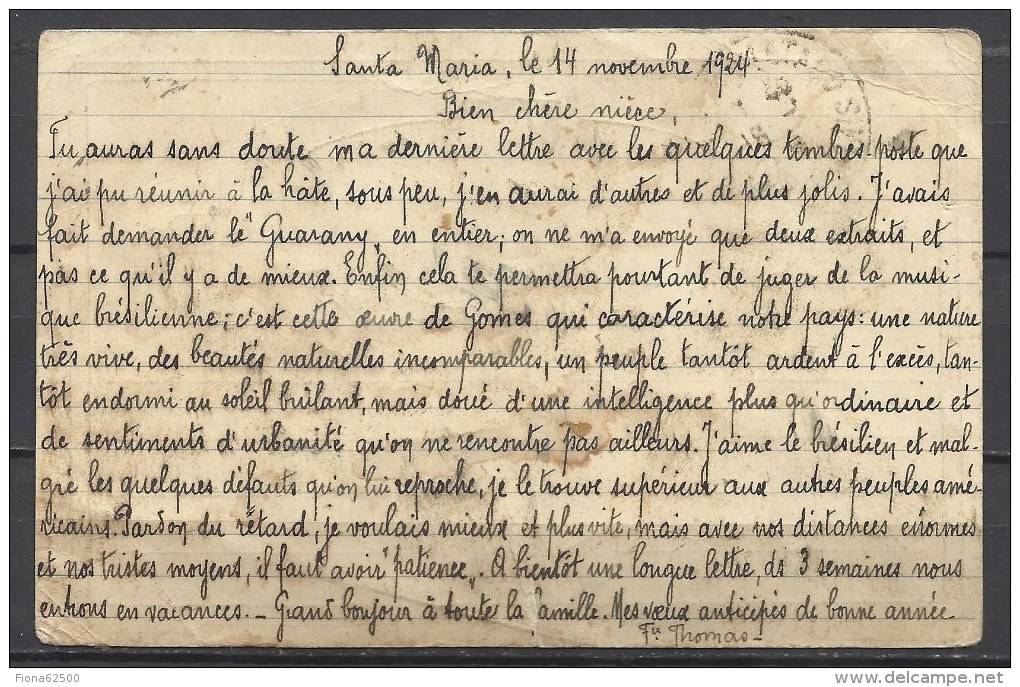 Santa Maria, le 14 novembre 1924
Bien chère nièce,
Tu auras sans doute ma dernière lettre avec les quelques timbres poste que
j'ai pu réunir à la hâte, sous peu, j'en aurai d'autres et de plus jolis. J'avais
fait demander le "Guarany" en entier; on ne m'a envoyé que deux extraits, et
pas ce qu'il y a de mieux. Enfin cela te permettra pourtant de juger de la musi-
que brésilienne; c'est cette œuvre de Gomes qui caractérise notre pays: une nature
très vive, des beautés naturelles incomparables, un peuple tantôt ardent à l'excès, tan-
tôt endormi au soleil brûlant, mais doué d'une intelligence plus qu'ordinaire et
de sentiments d'urbanité qu'on ne rencontre pas ailleurs. J'aime le brésilien et mal-
gré les quelques défauts qu'on lui reproche, je le trouve supérieur aux autres peuples amé-
ricains. Pardon du rétard, je voulais mieux et plus vite, mais avec nos distances énormes
et nos tristes moyens, il faut avoir "patience". A bientôt une longue lettre, ds 3 semaines nous
entrons en vacances. - Grand bonjour à toute la famille. Mes vœux anticipés de bonne année
Fr. Thomas -
Fiona62500
delcampe.net